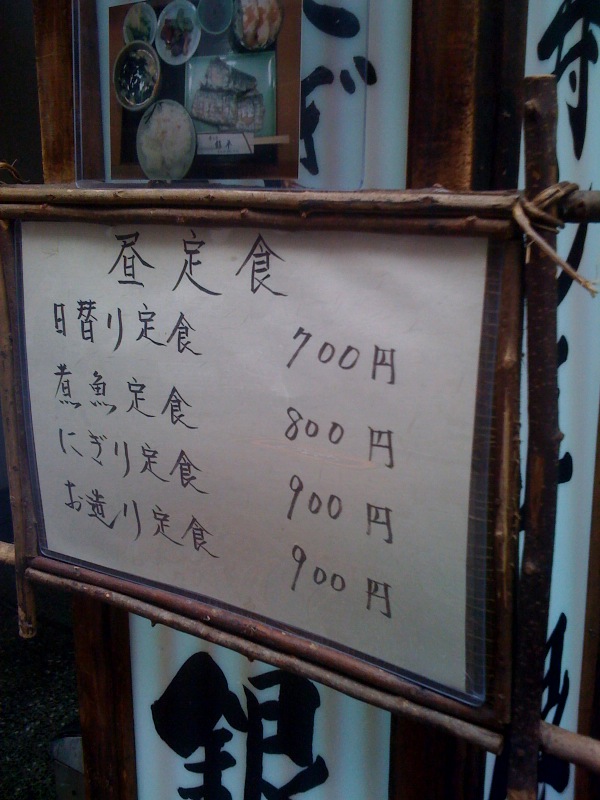 昼定食
日替り定食 700円
煮魚定食 800円
にぎり定食 900円
お造り定食 900円
銀